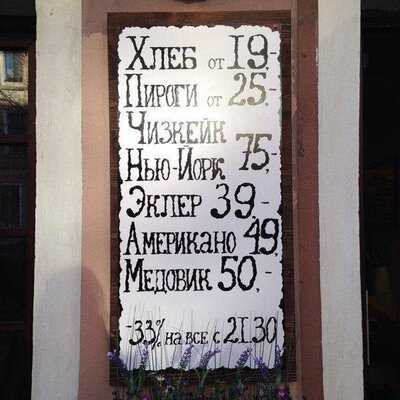 Хлеб от 19,-
Пироги от 25,-
Чизкейк
Нью-Йорк 75,-
Эклер 39,-
Американо 49,-
Медовик 50,-
-33% на все с 21.30